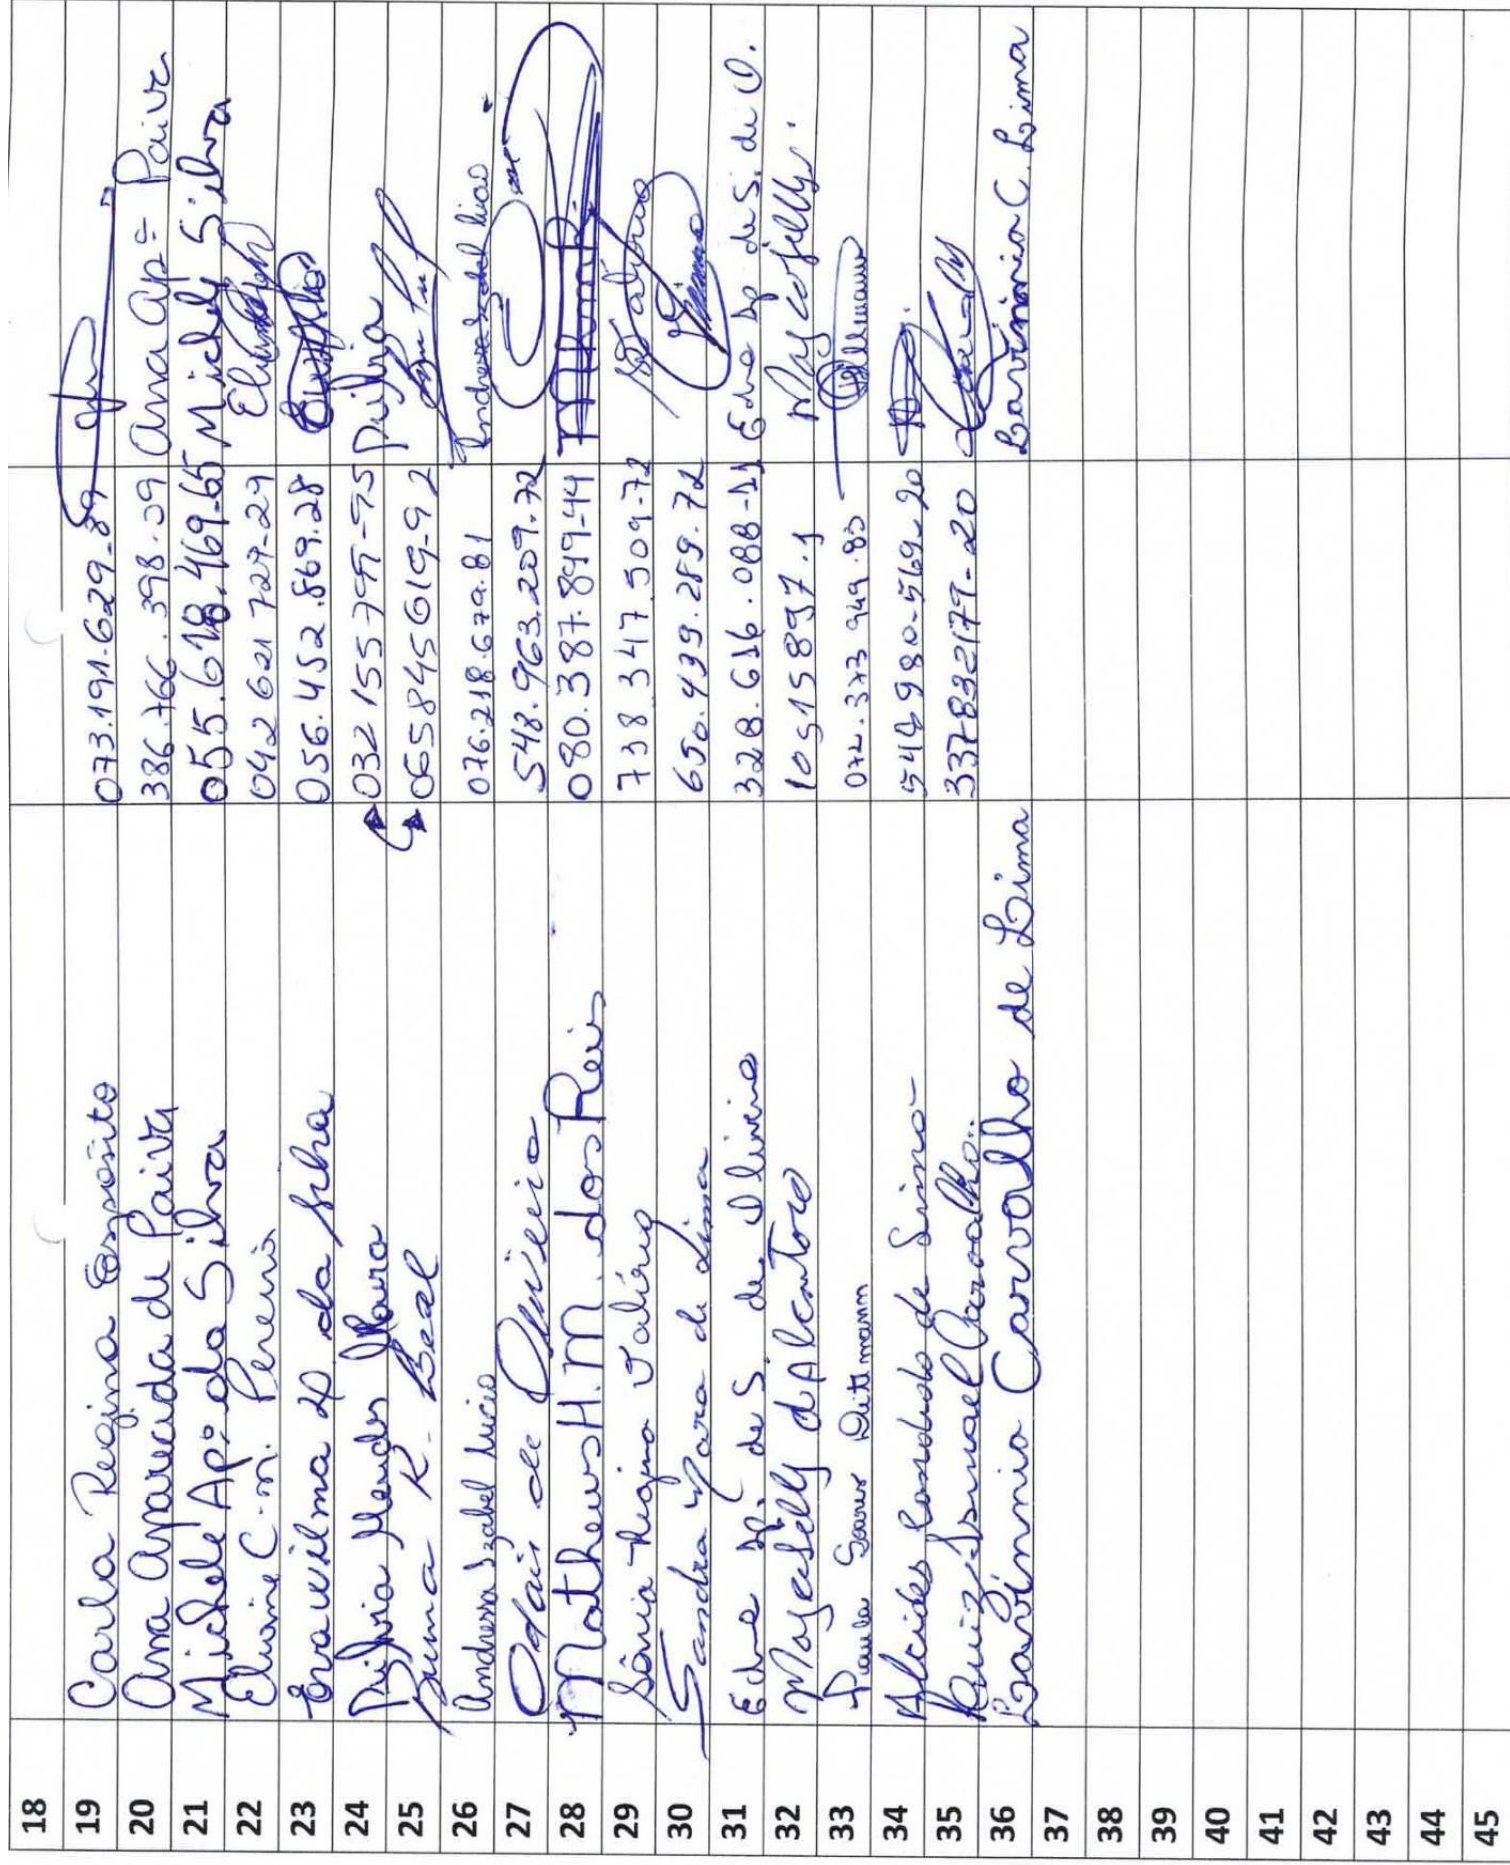 18
19 Carla Regina Esposito 073.191.629-89
20 Ana Aparecida de Paiva 386.766.398-09 Ana Apª Paiva
21 Michele Apª da Silva 055.618.469-65 Michely Silva
22 Eliane C. M. Pereira 042 621 727-29
23 da Silva 056.452.869.28
24 Silvia Mendes 032 155 799-95 Silvia
25 Bruna R. Leal 065845619-92
26 Andressa Izabel Lucio 076.218.679.81
27 Odair de Oliveira 548.963.209.72
28 Matheus H. M. dos Reis 080.387.849-44
29 Sônia Regina Valério 738.347.509-72
30 Sandra Mara de Lima 650.499.289.72
31 Edna Ap. de S. de Oliveira 328.616.088-11 Edna Ap de S. de O.
32 Mayeselly d'Alcantara 10515897.1
33 Paula Dittmann 072.373.949.83
34 Alcides 544980-569-20
35 Luiz Ismael Carvalho 337832179-20
36 Lavinnia Carvalho de Lima Lavinnia C. Lima
37
38
39
40
41
42
43
44
45